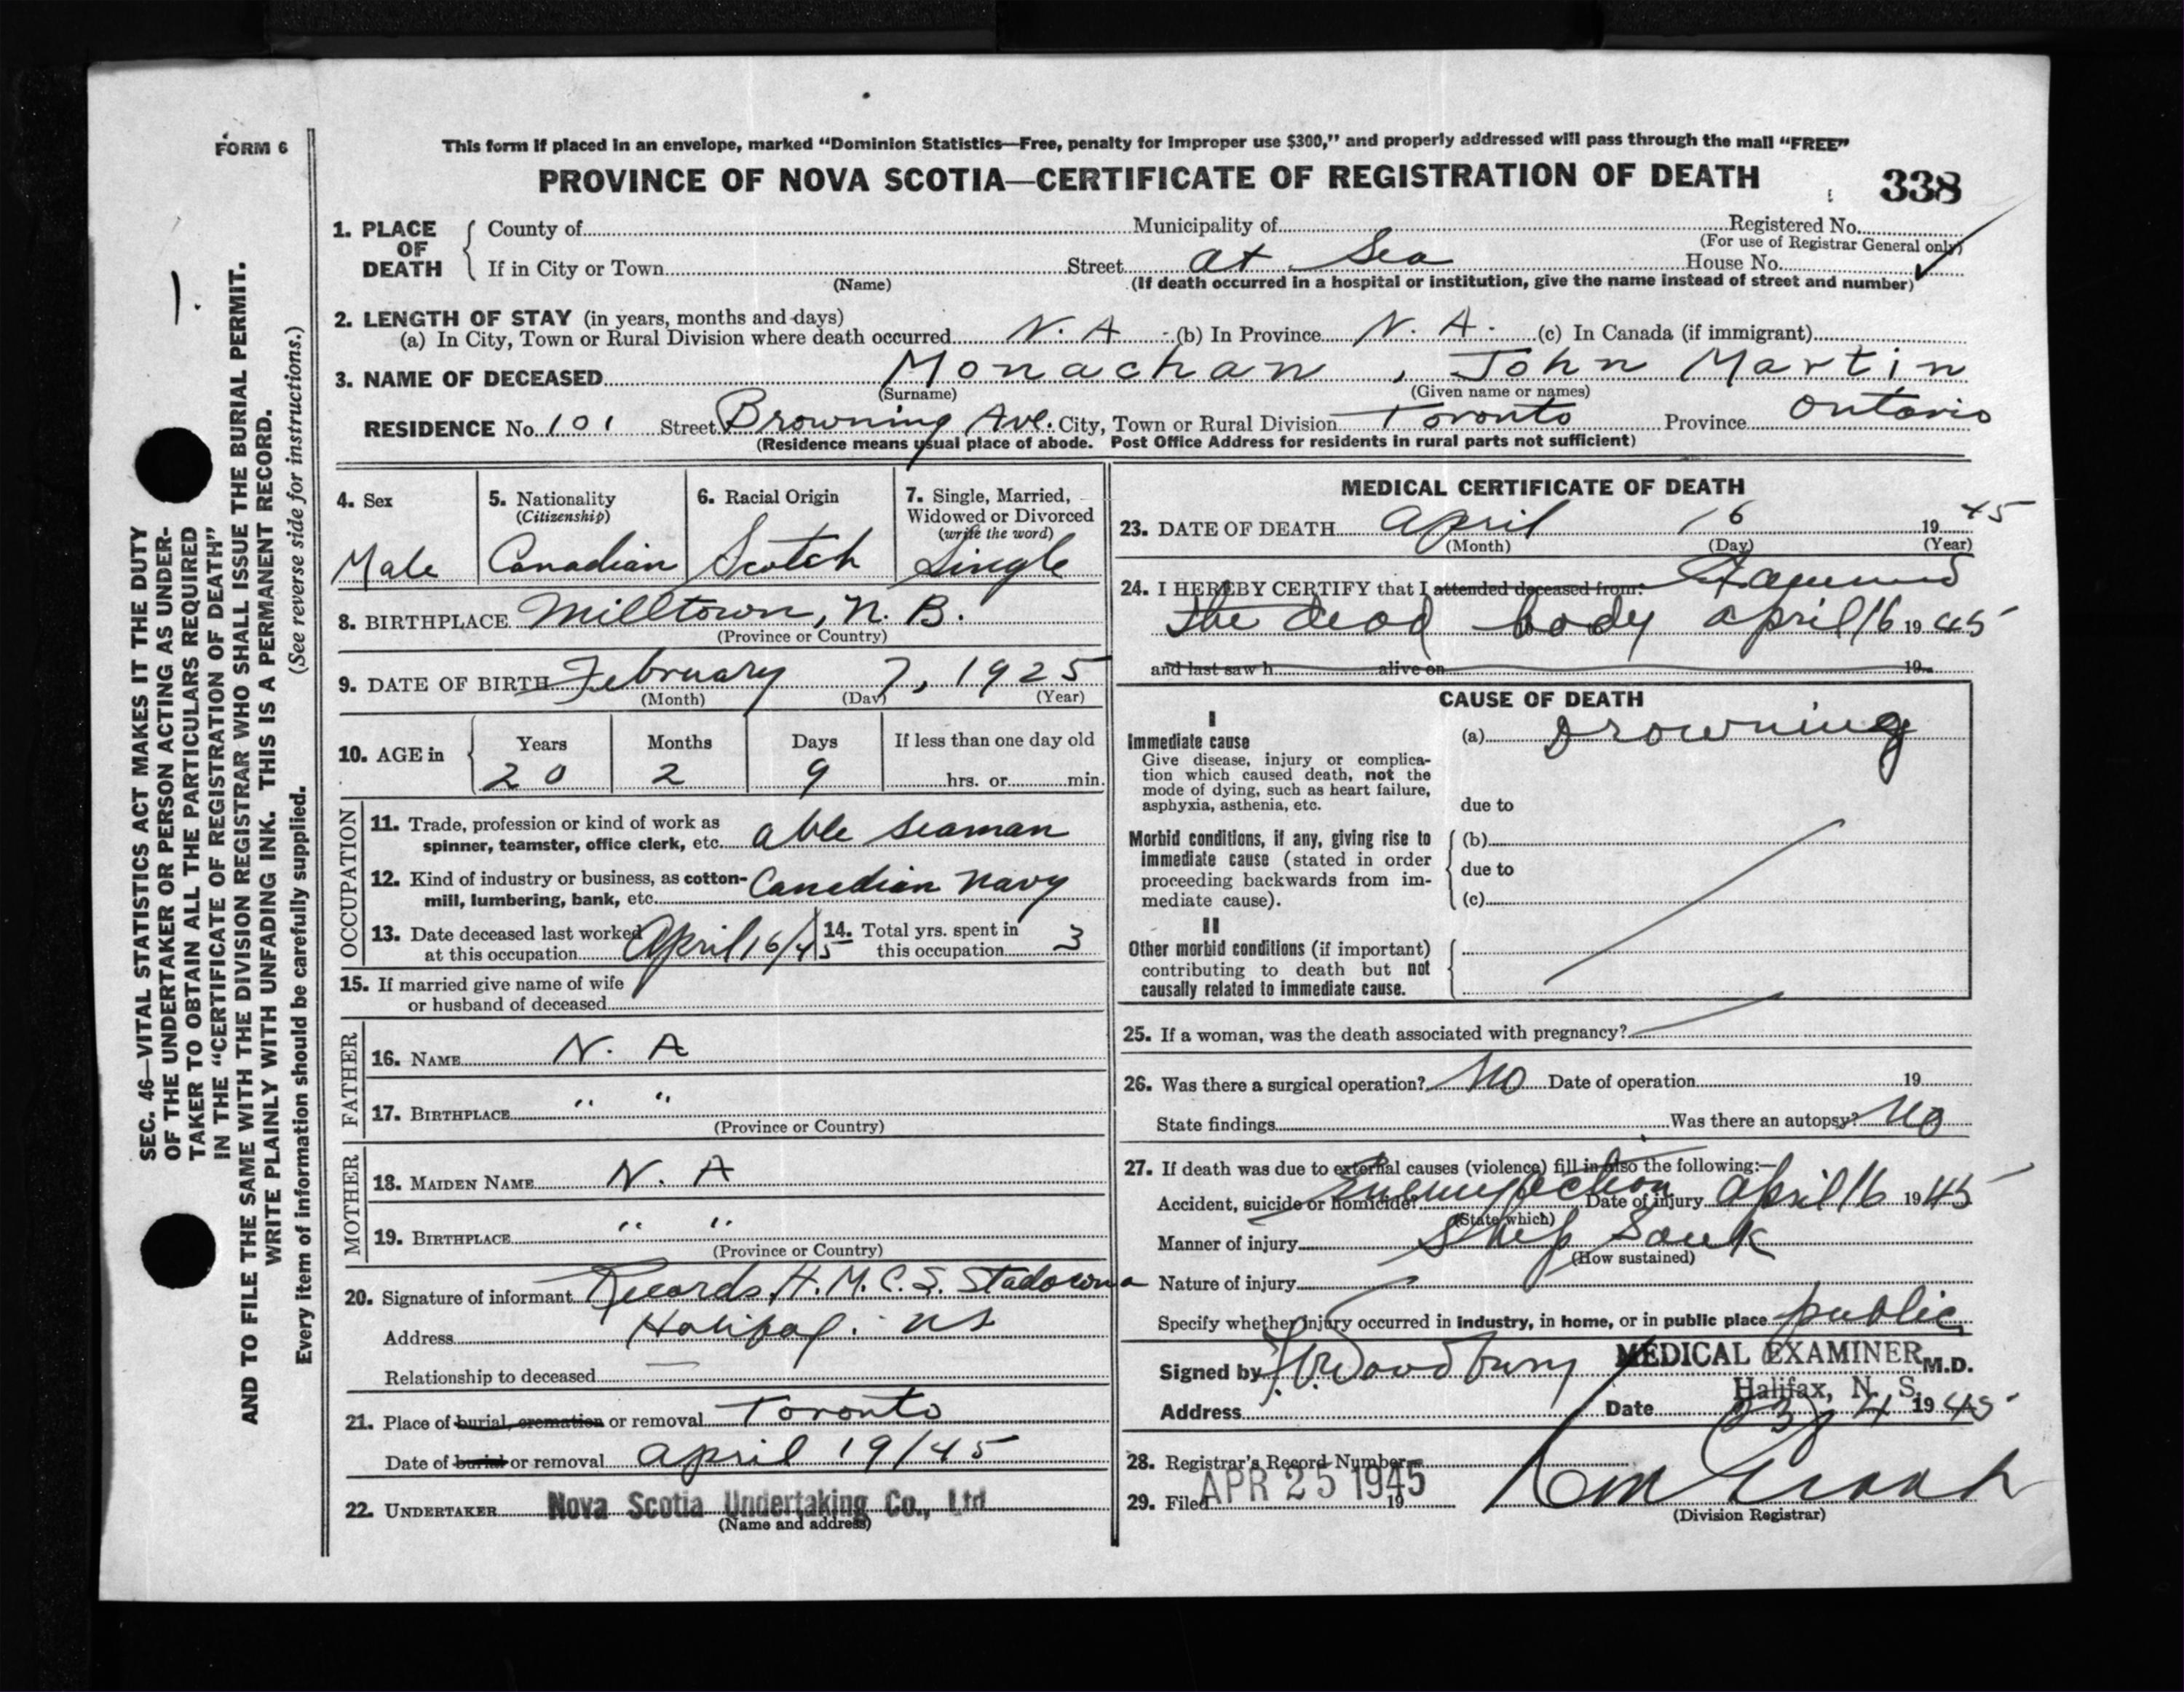 FORM 6
This form if placed in an envelope, marked “Dominion Statistics—Free, penalty for improper use $300,” and properly addressed will pass through the mail “FREE”
PROVINCE OF NOVA SCOTIA—CERTIFICATE OF REGISTRATION OF DEATH
338
1. PLACE OF DEATH
County of Municipality of Registered No.
(For use of Registrar General only)
If in City or Town Street at Sea House No.
(Name) (If death occurred in a hospital or institution, give the name instead of street and number)
2. LENGTH OF STAY (in years, months and days)
(a) In City, Town or Rural Division where death occurred N. A (b) In Province N. A. (c) In Canada (if immigrant)
3. NAME OF DECEASED Monachan, John Martin
(Surname) (Given name or names)
RESIDENCE No. 101 Street Browning Ave. City, Town or Rural Division Toronto Province Ontario
(Residence means usual place of abode. Post Office Address for residents in rural parts not sufficient)
4. Sex
Male
5. Nationality
(Citizenship)
Canadian
6. Racial Origin
Scotch
7. Single, Married,
Widowed or Divorced
(write the word)
Single
8. BIRTHPLACE Milltown, N. B.
(Province or Country)
9. DATE OF BIRTH February 7, 1925
(Month) (Day) (Year)
10. AGE in
Years Months Days If less than one day old
20 2 9 hrs. or min.
OCCUPATION
11. Trade, profession or kind of work as
spinner, teamster, office clerk, etc. able seaman
12. Kind of industry or business, as cotton-
mill, lumbering, bank, etc. Canadian Navy
13. Date deceased last worked
at this occupation April 16/45
14. Total yrs. spent in
this occupation 3
15. If married give name of wife
or husband of deceased
FATHER
16. NAME N. A
17. BIRTHPLACE " "
(Province or Country)
MOTHER
18. MAIDEN NAME N. A
19. BIRTHPLACE " "
(Province or Country)
20. Signature of informant Records. H. M. C. S. Stadacona
Address Halifax. NS
Relationship to deceased —
21. Place of burial, cremation or removal Toronto
Date of burial or removal April 19/45
22. UNDERTAKER Nova Scotia Undertaking Co., Ltd
(Name and address)
MEDICAL CERTIFICATE OF DEATH
23. DATE OF DEATH April 16 1945
(Month) (Day) (Year)
24. I HEREBY CERTIFY that I attended deceased from: Examined
the dead body April 16 1945
and last saw h alive on 19
CAUSE OF DEATH
I
Immediate cause
Give disease, injury or complica-
tion which caused death, not the
mode of dying, such as heart failure,
asphyxia, asthenia, etc.
(a) Drowning
due to
Morbid conditions, if any, giving rise to
immediate cause (stated in order
proceeding backwards from im-
mediate cause).
(b)
due to
(c)
II
Other morbid conditions (if important)
contributing to death but not
causally related to immediate cause.
25. If a woman, was the death associated with pregnancy?
26. Was there a surgical operation? No Date of operation 19
State findings Was there an autopsy? No
27. If death was due to external causes (violence) fill in also the following:—
Accident, suicide or homicide? Enemy action Date of injury April 16 1945
(State which)
Manner of injury Ship Sunk
(How sustained)
Nature of injury
Specify whether injury occurred in industry, in home, or in public place public
Signed by Woodbury MEDICAL EXAMINER M.D.
Halifax, N. S.
Address Date 23/4 1945
28. Registrar's Record Number
29. Filed APR 25 1945 19
(Division Registrar)
SEC. 46—VITAL STATISTICS ACT MAKES IT THE DUTY
OF THE UNDERTAKER OR PERSON ACTING AS UNDER-
TAKER TO OBTAIN ALL THE PARTICULARS REQUIRED
IN THE “CERTIFICATE OF REGISTRATION OF DEATH”
AND TO FILE THE SAME WITH THE DIVISION REGISTRAR WHO SHALL ISSUE THE BURIAL PERMIT.
WRITE PLAINLY WITH UNFADING INK. THIS IS A PERMANENT RECORD.
Every item of information should be carefully supplied. (See reverse side for instructions.)